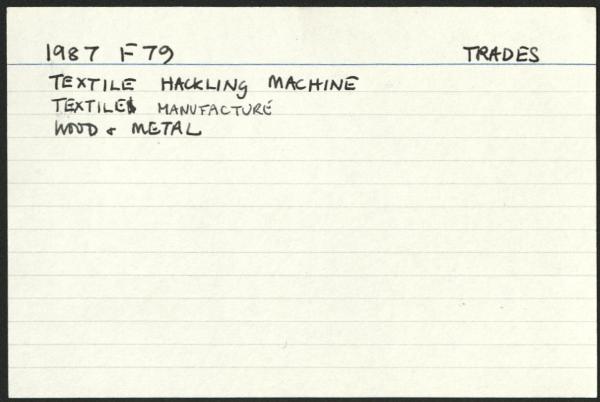 1987 F79 TRADES
TEXTILE HACKLING MACHINE
TEXTILE MANUFACTURE
WOOD & METAL